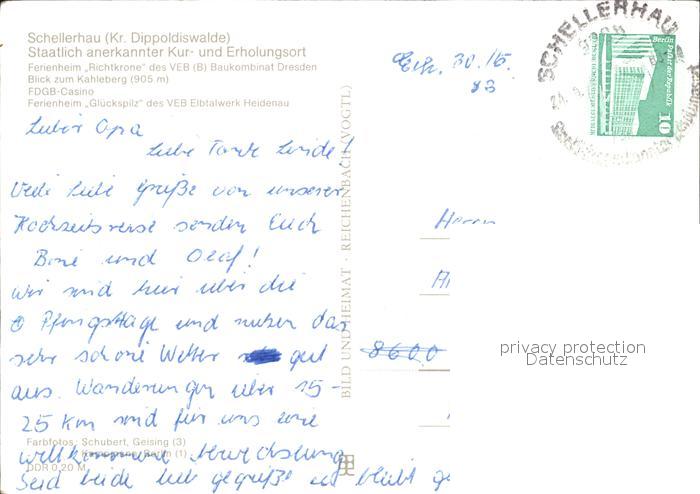 Schellerhau (Kr. Dippoldiswalde)
Staatlich anerkannter Kur- und Erholungsort
Ferienheim „Richtkrone“ des VEB (B) Baukombinat Dresden
Blick zum Kahleberg (905 m)
FDGB-Casino
Ferienheim „Glückspilz“ des VEB Elbtalwerk Heidenau
30./5.
83
Lieber Opa
liebe Tante Linde!
Viele liebe Grüße von unserer
Hochzeitsreise senden Euch
und Olaf!
wir sind hier über die
Pfingsttage und nutzen das
sehr schöne Wetter gut
aus. Wanderungen über 15-
25 Km sind für uns eine
willkommene Abwechslung
Seid beide lieb gegrüßt und bleibt
Farbfotos: Schubert, Geising (3)
Berlin (1)
DDR 0,20 M
BILD UND HEIMAT · REICHENBACH (VOGTL)
SCHELLERHAU
Berlin Palast der Republik
10
Herrn
8600
privacy protection
Datenschutz